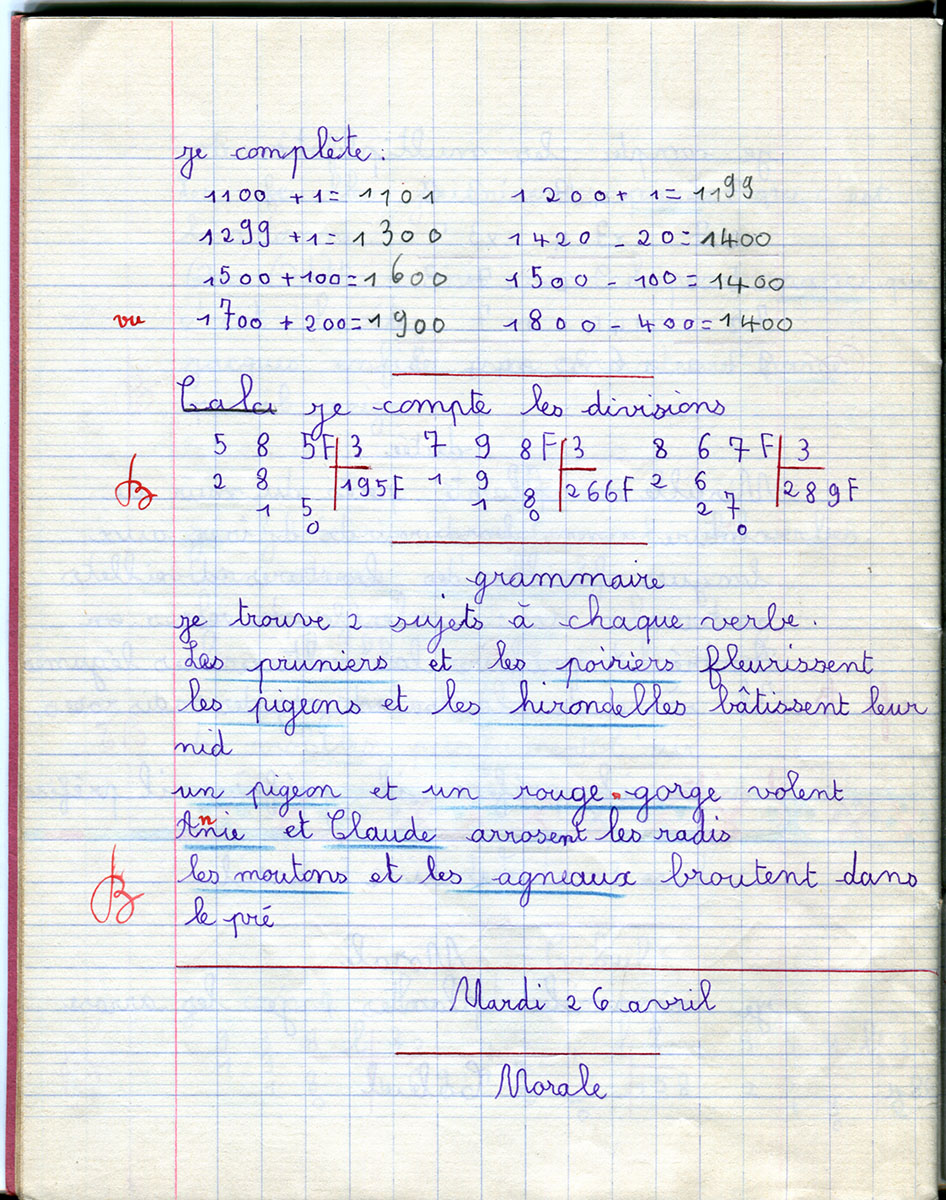 je complète :
1100 + 1 = 1101 1200 + 1 = 1199
1299 + 1 = 1300 1420 - 20 = 1400
1500 + 100 = 1600 1500 - 100 = 1400
vu 1700 + 200 = 1900 1800 - 400 = 1400
je compte les divisions
5 8 5F 3 7 9 8F 3 8 6 7F 3
B 2 8 195F 1 9 266F 2 6 289F
1 5 1 8 2 7
0 0 0
grammaire
je trouve 2 sujets à chaque verbe.
Les pruniers et les poiriers fleurissent
les pigeons et les hirondelles bâtissent leur
nid
un pigeon et un rouge-gorge volent
Annie et Claude arrosent les radis
B les moutons et les agneaux broutent dans
le pré
Mardi 26 avril
Morale